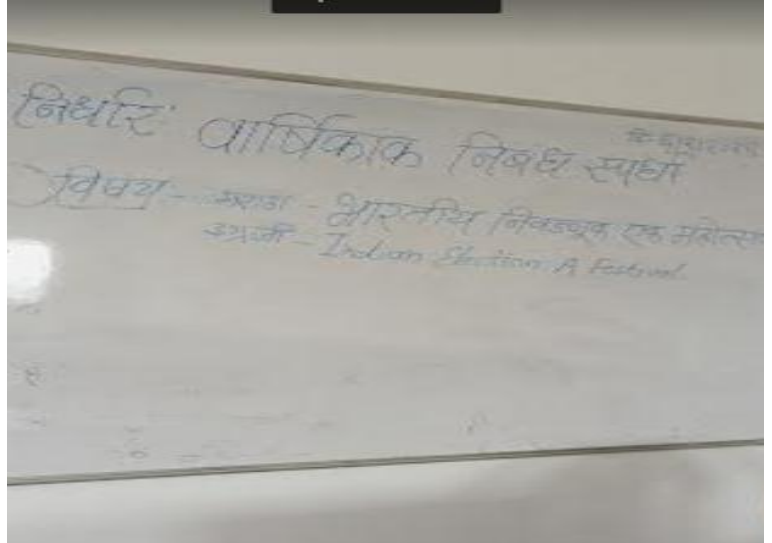 निर्धार वार्षिकांक निबंध स्पर्धा
विषय:- मराठी - भारतीय निवडणूक एक महोत्सव
इंग्रजी - Indian Election A Festival.